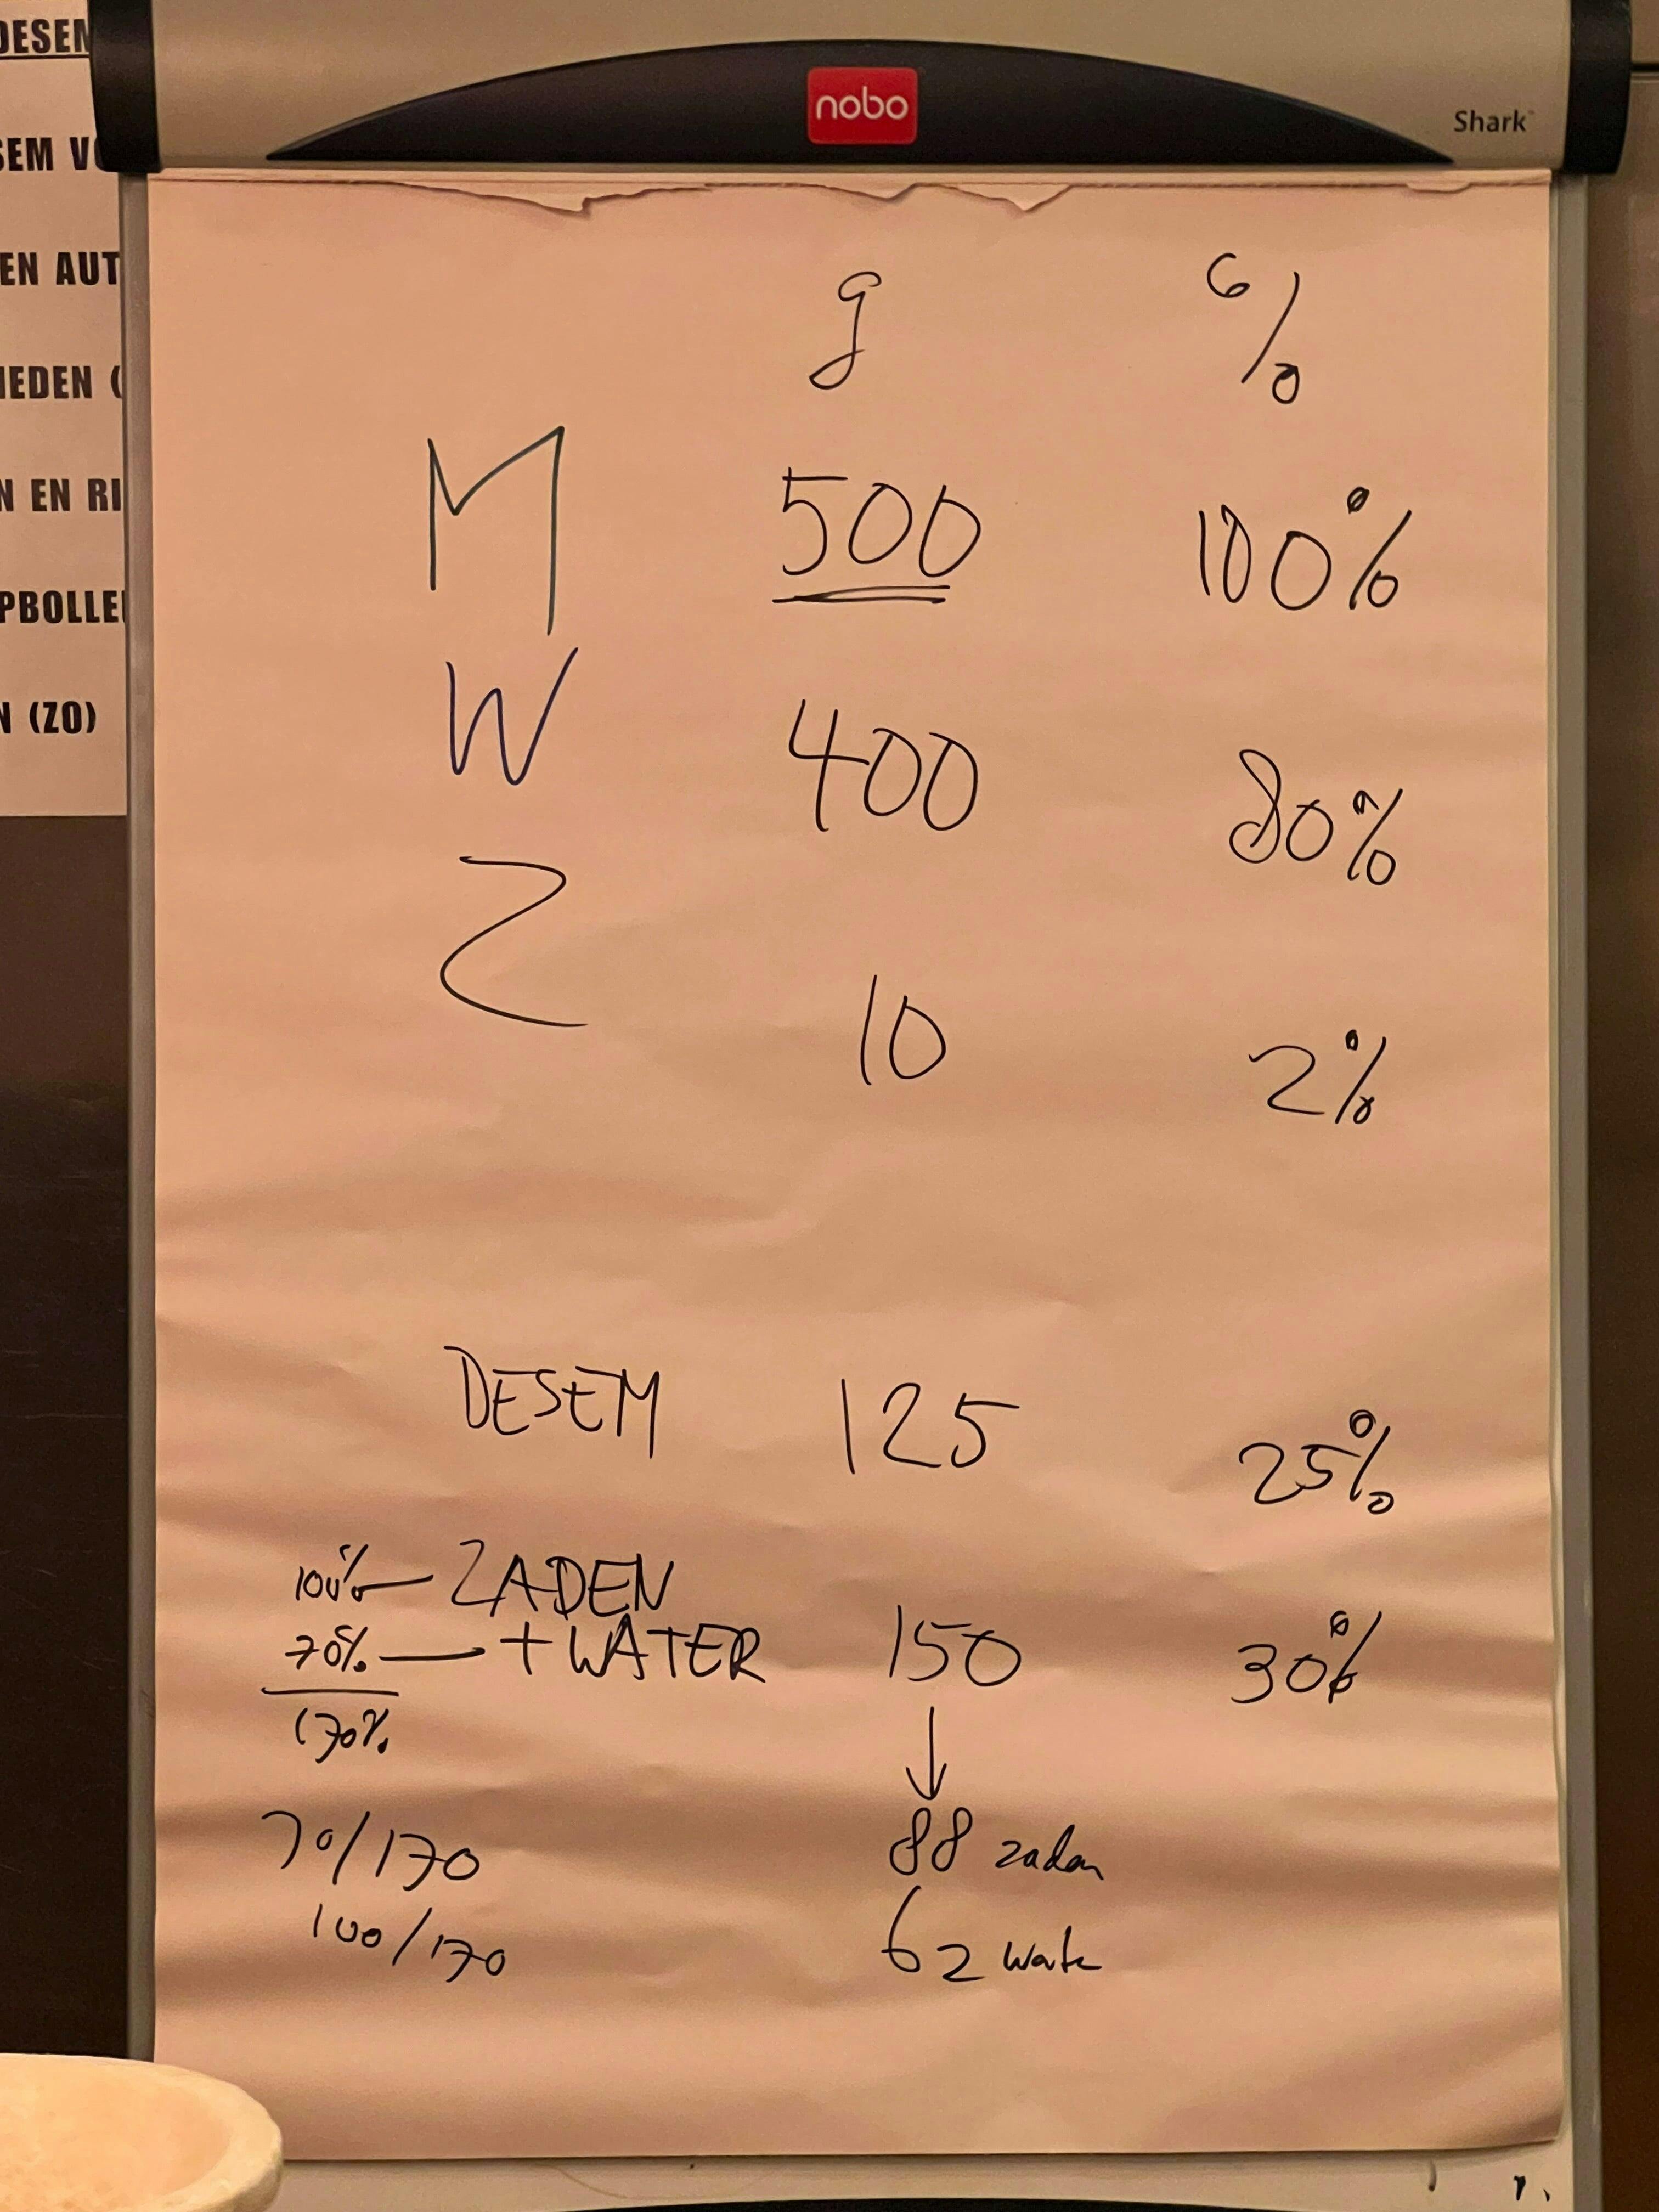 nobo
Shark™
DESEM
SEM VO
EN AUT
IEDEN (
N EN RI
PBOLLE
N (ZO)
g %
M 500 100%
W 400 80%
Z 10 2%
DESEM 125 25%
100% — ZADEN
70% — + WATER 150 30%
170%
↓
70/170 88 zaden
100/170 62 wate